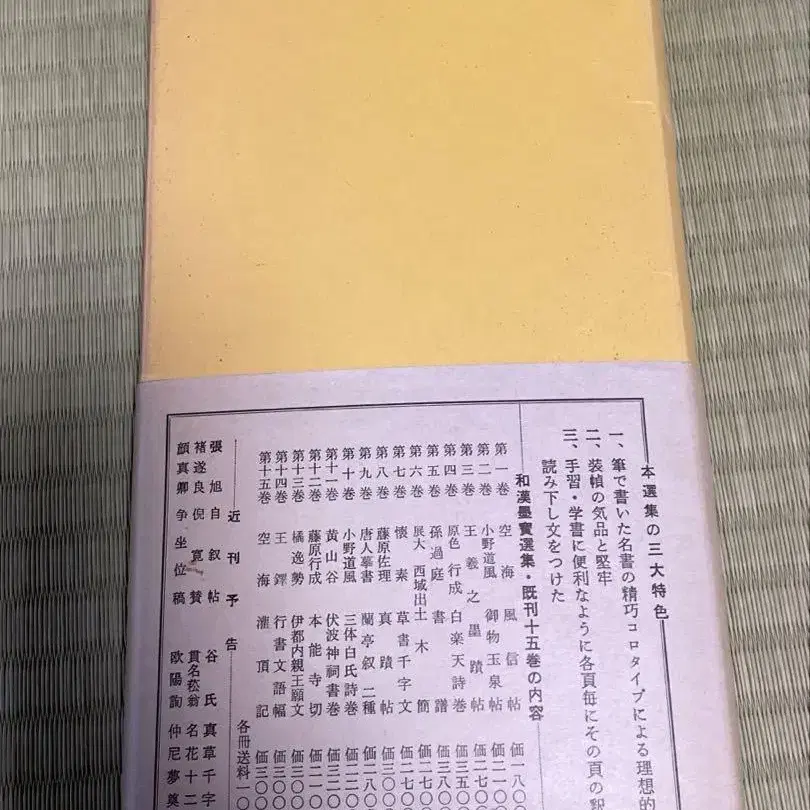 本選集の三大特色
一、筆で書いた名書の精巧コロタイプによる理想的
二、装幀の気品と堅牢
三、手習・学書に便利なように各頁毎にその頁の釈
読み下し文をつけた
和漢墨寳選集・既刊十五巻の内容
第一巻 空海 風信帖 価一八〇
第二巻 小野道風 御物玉泉帖 価二一〇
第三巻 王羲之 墨蹟帖 価二七〇
第四巻 原色 行成 白楽天詩巻 価三五〇
第五巻 孫過庭 書譜 価三八〇
第六巻 展大 西域出土木簡 価二七〇
第七巻 懐素 草書千字文 価二七〇
第八巻 藤原佐理 真蹟帖 価一七〇
第九巻 唐人摹書 蘭亭叙二種 価二八〇
第十巻 小野道風 三体白氏詩巻 価二二〇
第十一巻 黄山谷 伏波神祠書巻 価三二〇
第十二巻 藤原行成 本能寺切 価二一〇
第十三巻 橘逸勢 伊都内親王願文 価三〇〇
第十四巻 王鐸 行書文語幅 価三〇〇
第十五巻 空海 灌頂記 価三〇〇
各冊送料一〇
近刊予告
張旭 自叙帖
褚遂良 倪寛賛
顔真卿 争坐位稿
谷氏 真草千字
貫名菘翁 名花十二
欧陽詢 仲尼夢奠